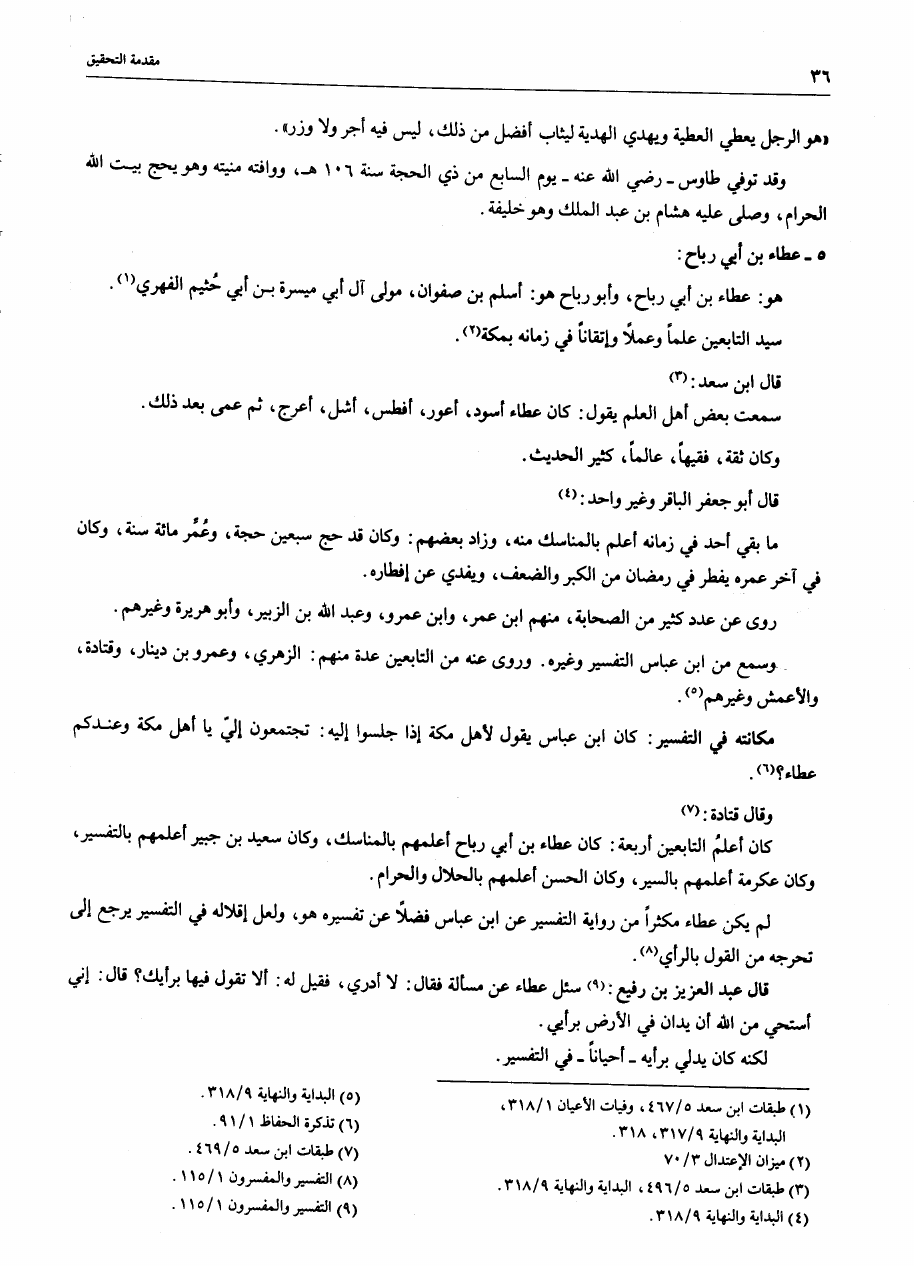 ٣٦
مقدمة التحقيق
«هو الرجل يعطي العطية ويهدي الهدية ليثاب أفضل من ذلك، ليس فيه أجر ولا وزر».
وقد توفي طاوس ـ رضي الله عنه ـ يوم السابع من ذي الحجة سنة ١٠٦ هـ، ووافته منيته وهو يحج بيت الله
الحرام، وصلى عليه هشام بن عبد الملك وهو خليفة.
٥ ـ عطاء بن أبي رباح:
هو: عطاء بن أبي رباح، وأبو رباح هو: أسلم بن صفوان، مولى آل أبي ميسرة بن أبي خُثيم الفهري(١).
سيد التابعين علماً وعملاً وإتقاناً في زمانه بمكة(٢).
قال ابن سعد:(٣)
سمعت بعض أهل العلم يقول: كان عطاء أسود، أعور، أفطس، أشل، أعرج، ثم عمى بعد ذلك.
وكان ثقة، فقيهاً، عالماً، كثير الحديث.
قال أبو جعفر الباقر وغير واحد:(٤)
ما بقي أحد في زمانه أعلم بالمناسك منه، وزاد بعضهم: وكان قد حج سبعين حجة، وعُمِّر مائة سنة، وكان
في آخر عمره يفطر في رمضان من الكبر والضعف، ويفدي عن إفطاره.
روى عن عدد كثير من الصحابة، منهم ابن عمر، وابن عمرو، وعبد الله بن الزبير، وأبو هريرة وغيرهم.
وسمع من ابن عباس التفسير وغيره. وروى عنه من التابعين عدة منهم: الزهري، وعمرو بن دينار، وقتادة،
والأعمش وغيرهم(٥).
مكانته في التفسير: كان ابن عباس يقول لأهل مكة إذا جلسوا إليه: تجتمعون إليّ يا أهل مكة وعندكم
عطاء؟(٦).
وقال قتادة:(٧)
كان أعلمُ التابعين أربعة: كان عطاء بن أبي رباح أعلمهم بالمناسك، وكان سعيد بن جبير أعلمهم بالتفسير،
وكان عكرمة أعلمهم بالسير، وكان الحسن أعلمهم بالحلال والحرام.
لم يكن عطاء مكثراً من رواية التفسير عن ابن عباس فضلاً عن تفسيره هو، ولعل إقلاله في التفسير يرجع إلى
تحرجه من القول بالرأي(٨).
قال عبد العزيز بن رفيع:(٩) سئل عطاء عن مسألة فقال: لا أدري، فقيل له: ألا تقول فيها برأيك؟ قال: إني
أستحي من الله أن يدان في الأرض برأيي.
لكنه كان يدلي برأيه ـ أحياناً ـ في التفسير.
(١) طبقات ابن سعد ٤٦٧/٥، وفيات الأعيان ٣١٨/١،
البداية والنهاية ٣١٧/٩، ٣١٨.
(٢) ميزان الإعتدال ٧٠/٣
(٣) طبقات ابن سعد ٤٩٦/٥، البداية والنهاية ٣١٨/٩.
(٤) البداية والنهاية ٣١٨/٩.
(٥) البداية والنهاية ٣١٨/٩.
(٦) تذكرة الحفاظ ٩١/١.
(٧) طبقات ابن سعد ٤٦٩/٥.
(٨) التفسير والمفسرون ١١٥/١.
(٩) التفسير والمفسرون ١١٥/١.